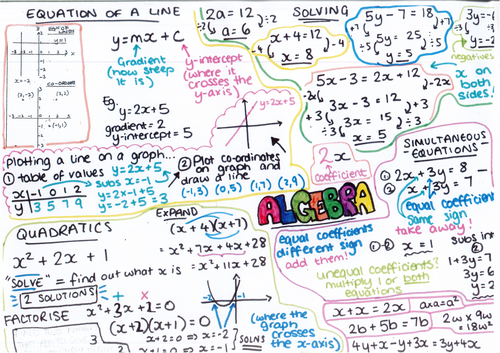 EQUATION OF A LINE
y=mx+c
Gradient
(how steep
it is)
y-intercept
(where it
crosses the
y-axis)
Eg.
y=2x+5
gradient = 2
y-intercept = 5
y=2x+5
CO-ORDS
(2,2)
(-1,-1)
x=-2
Plotting a line on a graph...
① table of values y=2x+5
subs x=-1
x | -1 0 1 2
y | 3 5 7 9
y=2x-1+5
y=-2+5=3
② Plot co-ordinates
on graph and
draw a line
(-1,3) (0,5) (1,7) (2,9)
SOLVING
2a = 12
÷2 ÷2
a = 6
x+4=12
-4 -4
x = 8
5y - 7 = 18
+7 +7
5y = 25
÷5 ÷5
y = 5
3y = -6
÷3
y = -2
negatives
5x - 3 = 2x + 12
-2x -2x
3x - 3 = 12
+3 +3
3x = 15
÷3 ÷3
x = 5
x on
both
sides!
2x
coefficient
ALGEBRA
SIMULTANEOUS
EQUATIONS
① 2x + 3y = 8
② x + 3y = 7
equal coefficients
same sign
take away!
①-② x = 1
subs into ②
1+3y=7
3y=6
y=2
equal coefficients
different sign
add them!
unequal coefficients?
multiply 1 or both
equations
QUADRATICS
x² + 2x + 1
"SOLVE" = find out what x is
2 SOLUTIONS
EXPAND
(x+4)(x+7)
= x²+7x+4x+28
= x²+11x+28
FACTORISE
x²+3x+2=0
(x+2)(x+1)=0
x+2=0 ⇒ x=-2
x+1=0 ⇒ x=-1
SOLNS
-2 -1
(where the
graph
crosses
the x-axis)
x+x=2x
axa=a²
2b+5b=7b
2w x 9w
=18w²
4y+x-y+3x=3y+4x
3